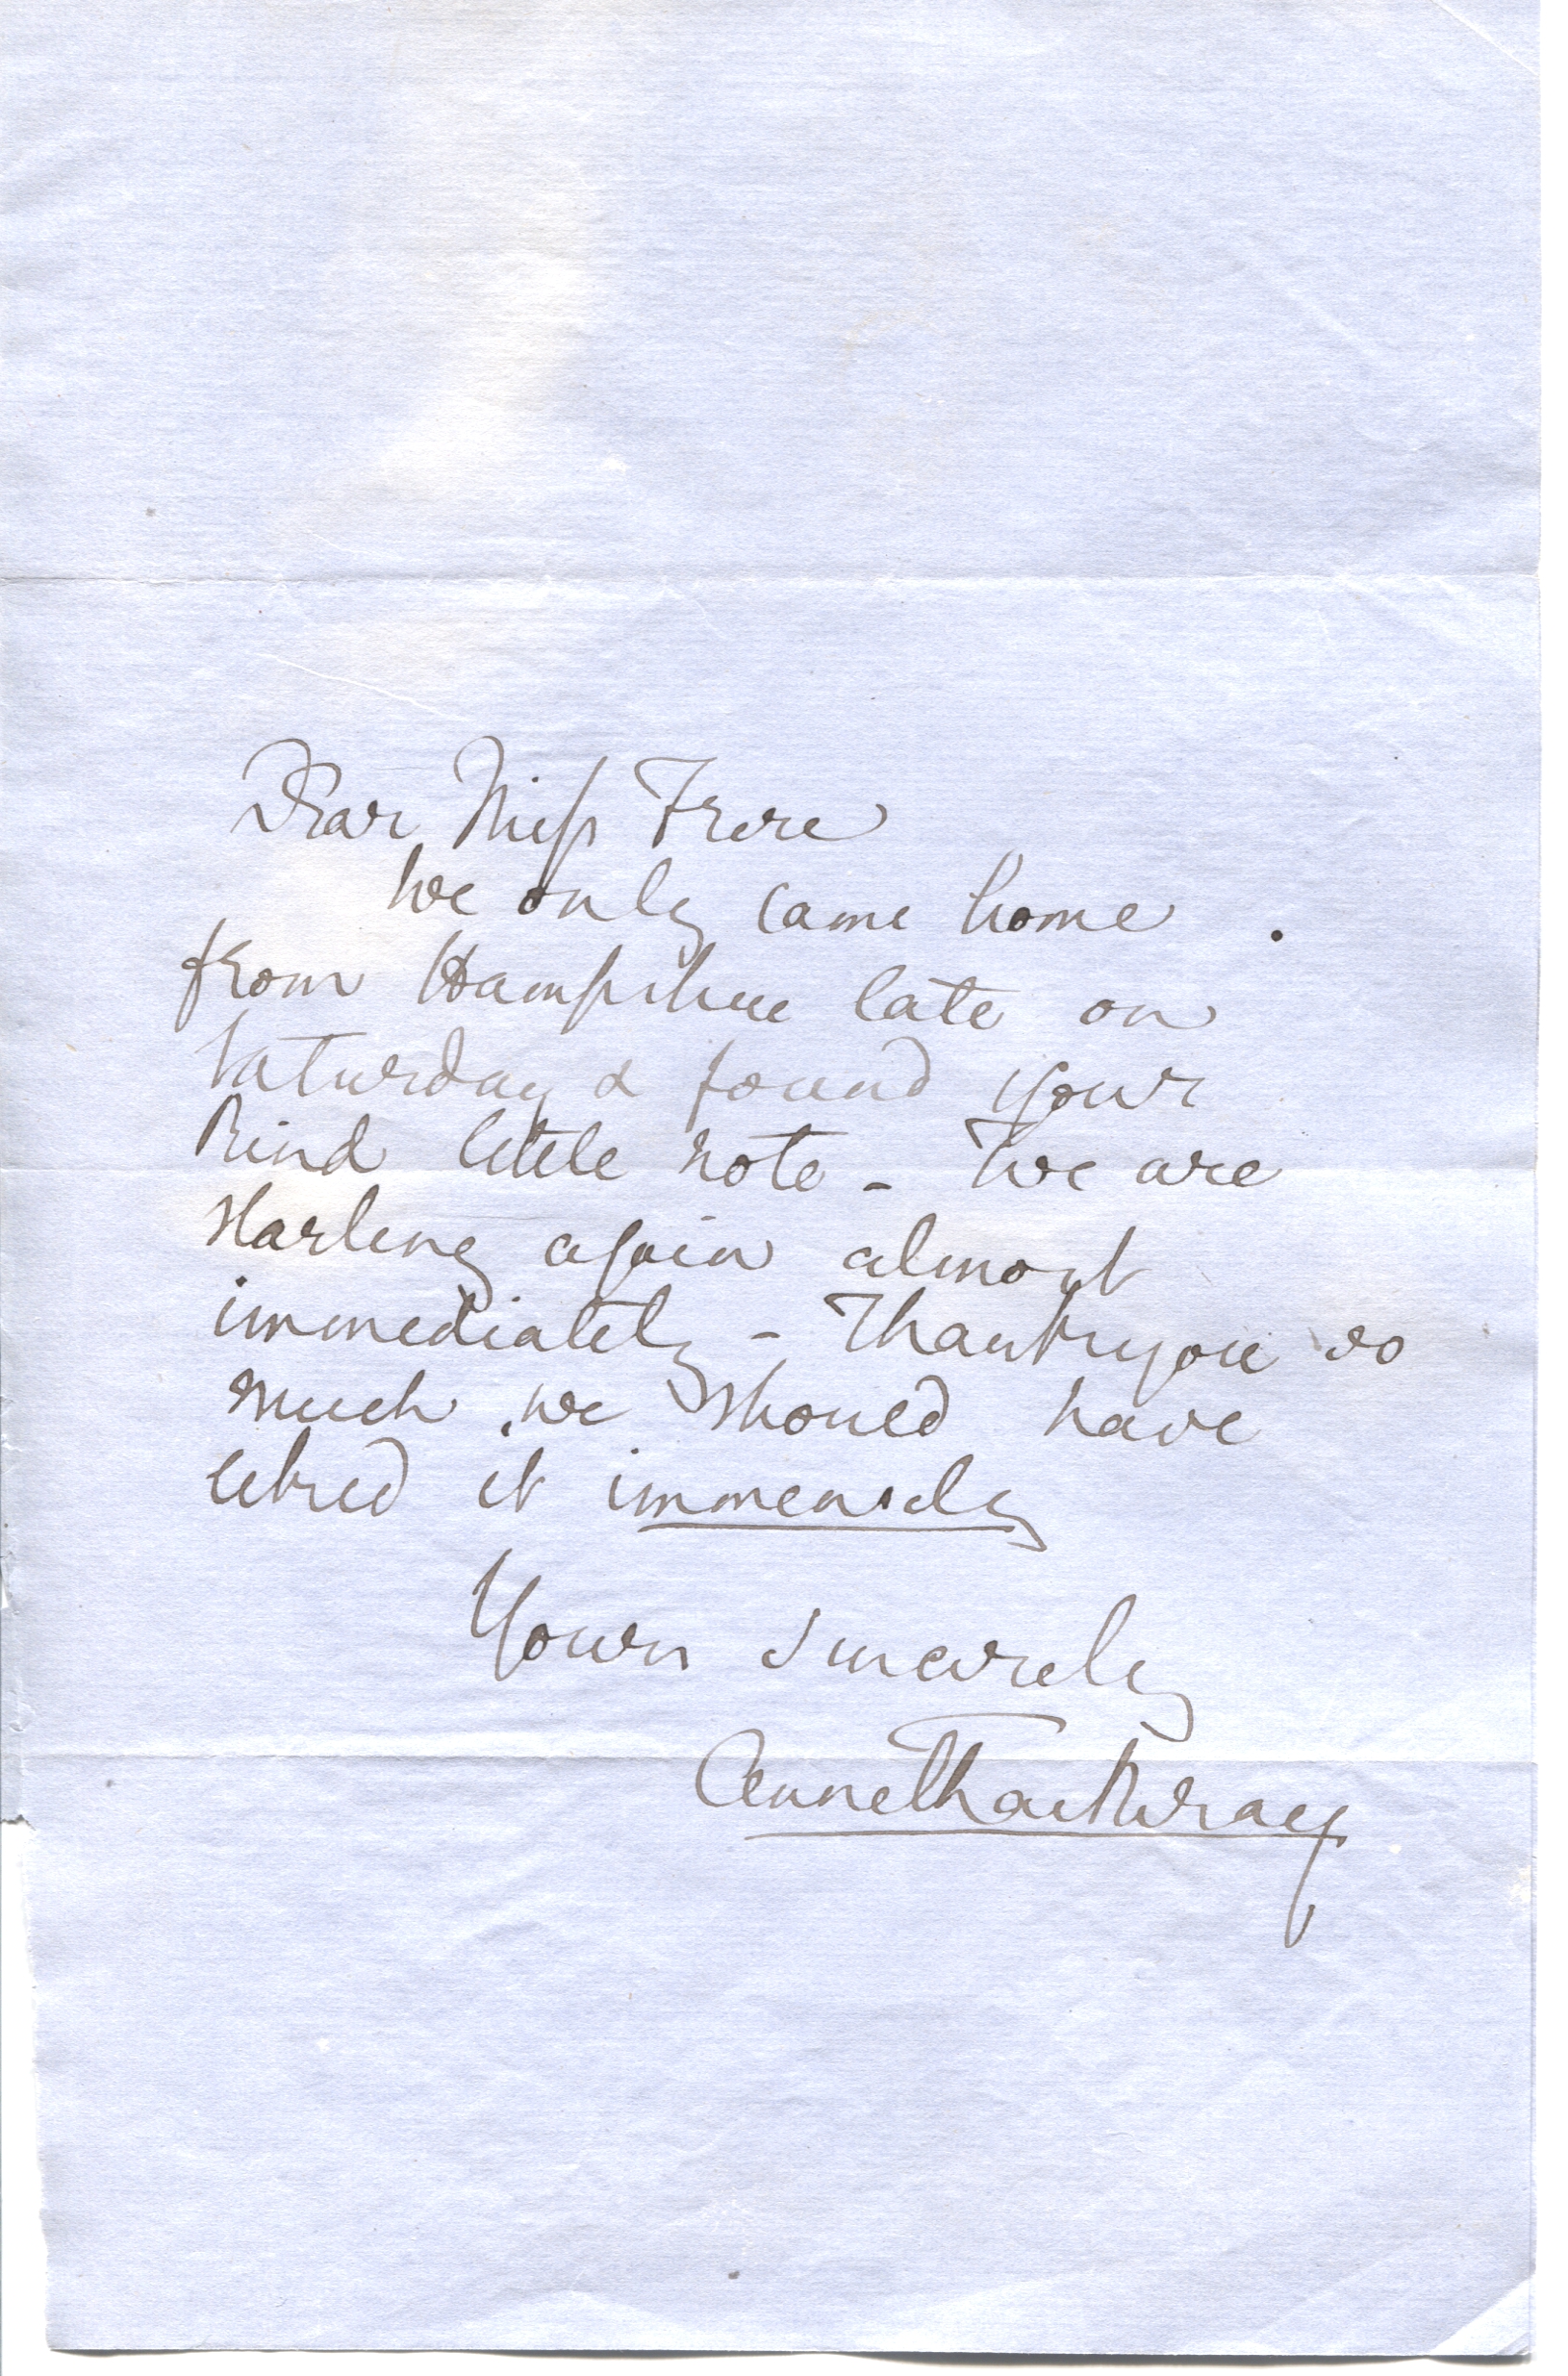 Dear Miss Frere
We only came home
from Hampshire late on
Saturday & found your
kind little note - We are
starting again almost
immediately - Thankyou so
much, we should have
liked it immensely
Yours sincerely
Anne Thackeray